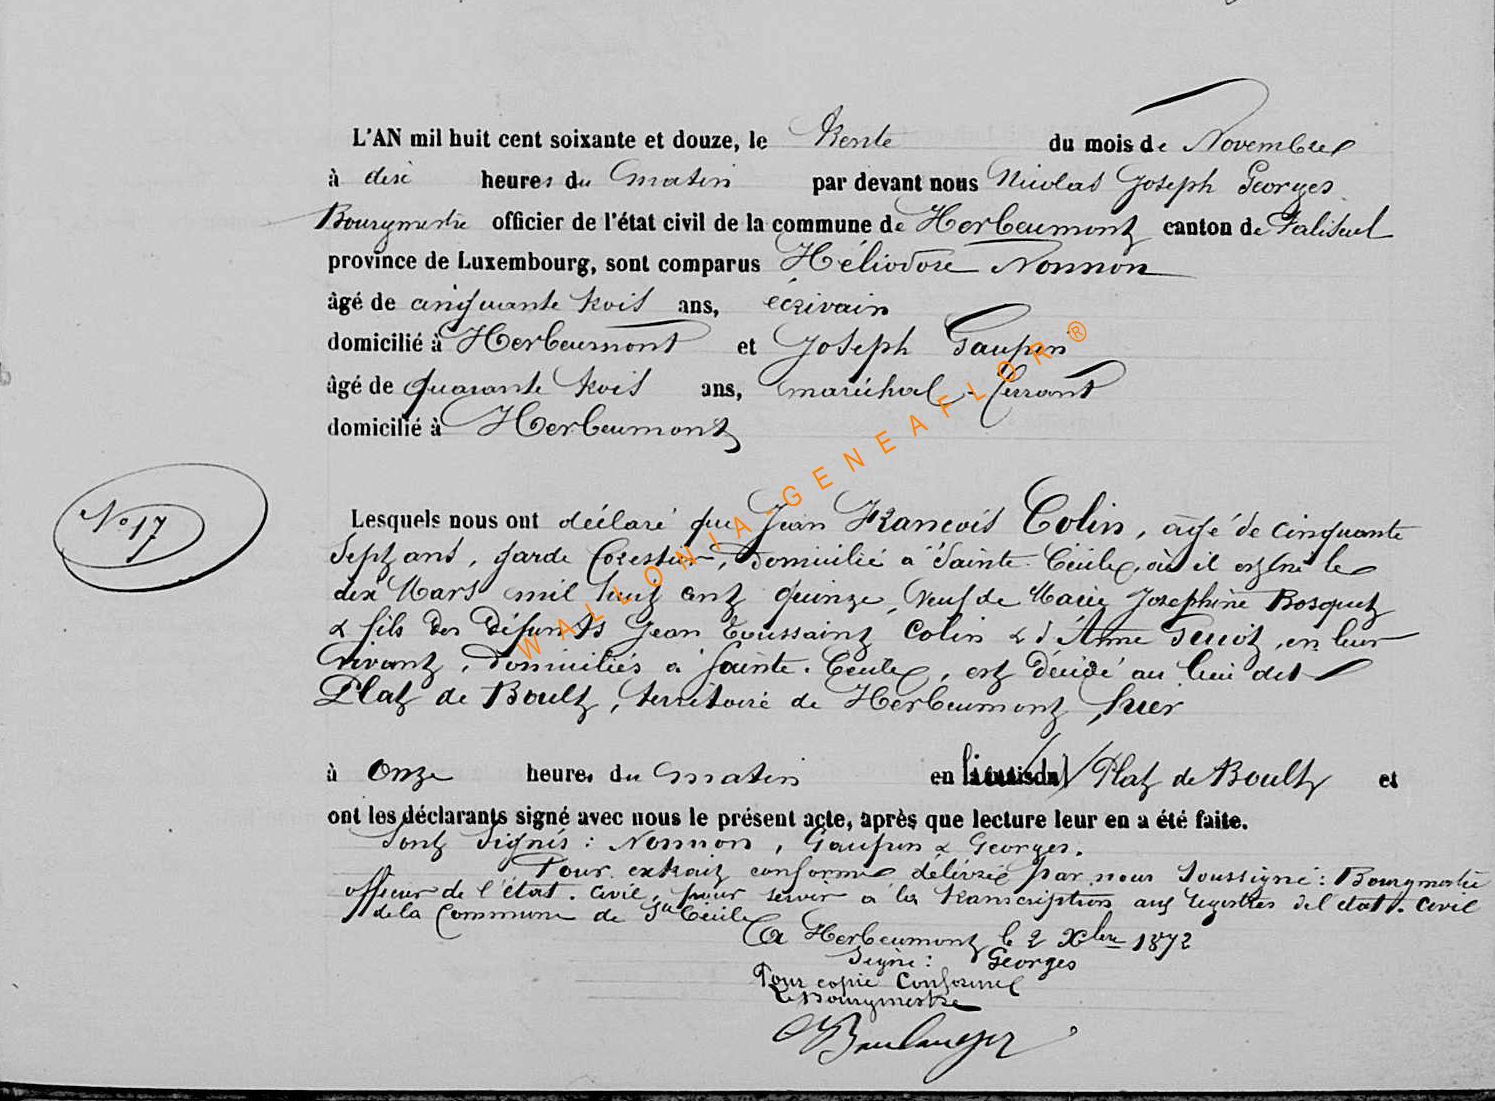 L'AN mil huit cent soixante et douze, le trente du mois de Novembre
à dix heures du matin par devant nous Nicolas Joseph Georges
Bourgmestre officier de l'état civil de la commune de Herbeumont canton de Paliseul
province de Luxembourg, sont comparus Héliodore Nonnon
âgé de cinquante trois ans, écrivain
domicilié à Herbeumont et Joseph Gaupin
âgé de quarante trois ans, maréchal-ferrant
domicilié à Herbeumont
N° 17
Lesquels nous ont déclaré que Jean François Colin, âgé de cinquante
sept ans, garde forestier, domicilié à Sainte-Cécile, où il est né le
dix Mars mil huit cent quinze, veuf de Marie Josephine Bosquet
& fils des défunts Jean Toussaint Colin & d'Anne en leur
vivant, domiciliés à Sainte-Cécile, est décédé au lieu dit
Plat de Boult, territoire de Herbeumont, hier
à Onze heures du matin en Plat de Boult et
ont les déclarants signé avec nous le présent acte, après que lecture leur en a été faite.
Sont Signés : Nonnon, Gaupin & Georges.
Pour extrait conforme délivré par nous soussigné : Bourgmestre
officier de l'état-civil, pour servir à la transcription aux registres de l'état-civil
de la Commune de Ste Cécile
A Herbeumont le 2 Xbre 1872
Signé : Georges
Pour copie Conforme
Le Bourgmestre
Boulanger
WALLONIA-GENEAFLOR®